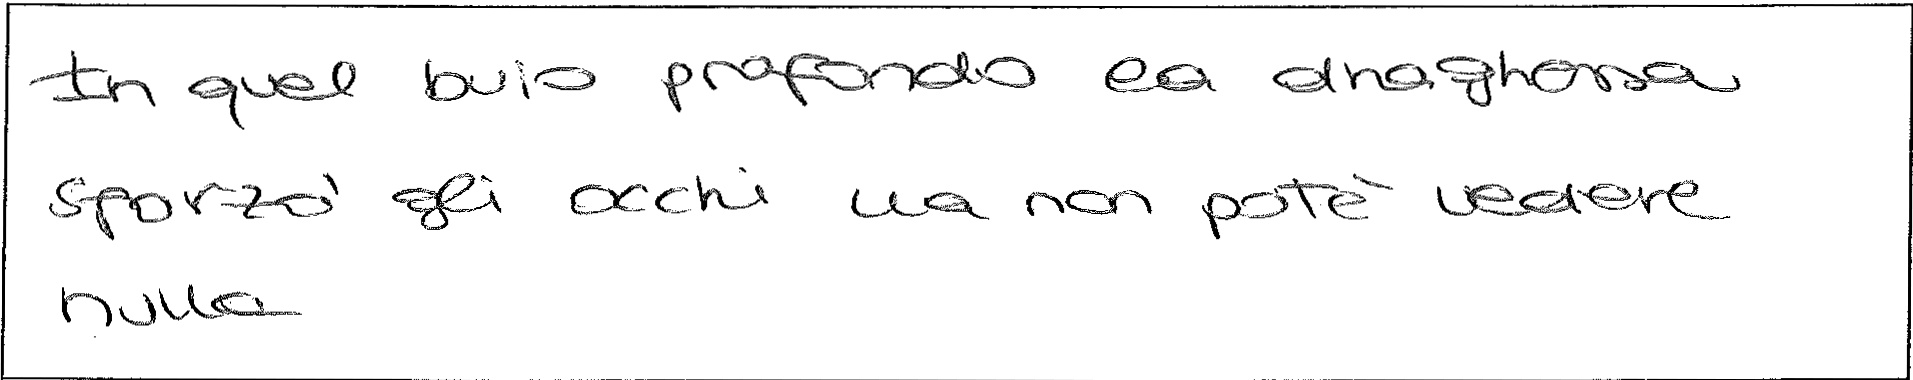 In quel buio profondo la
sforzò gli occhi ma non potè vedere
nulla